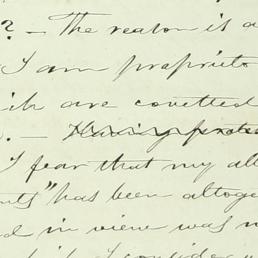 ? — The reason is a
I am proprieto
ich are covetted
. — Having
I fear that my all
" has been altoge
d in view was n